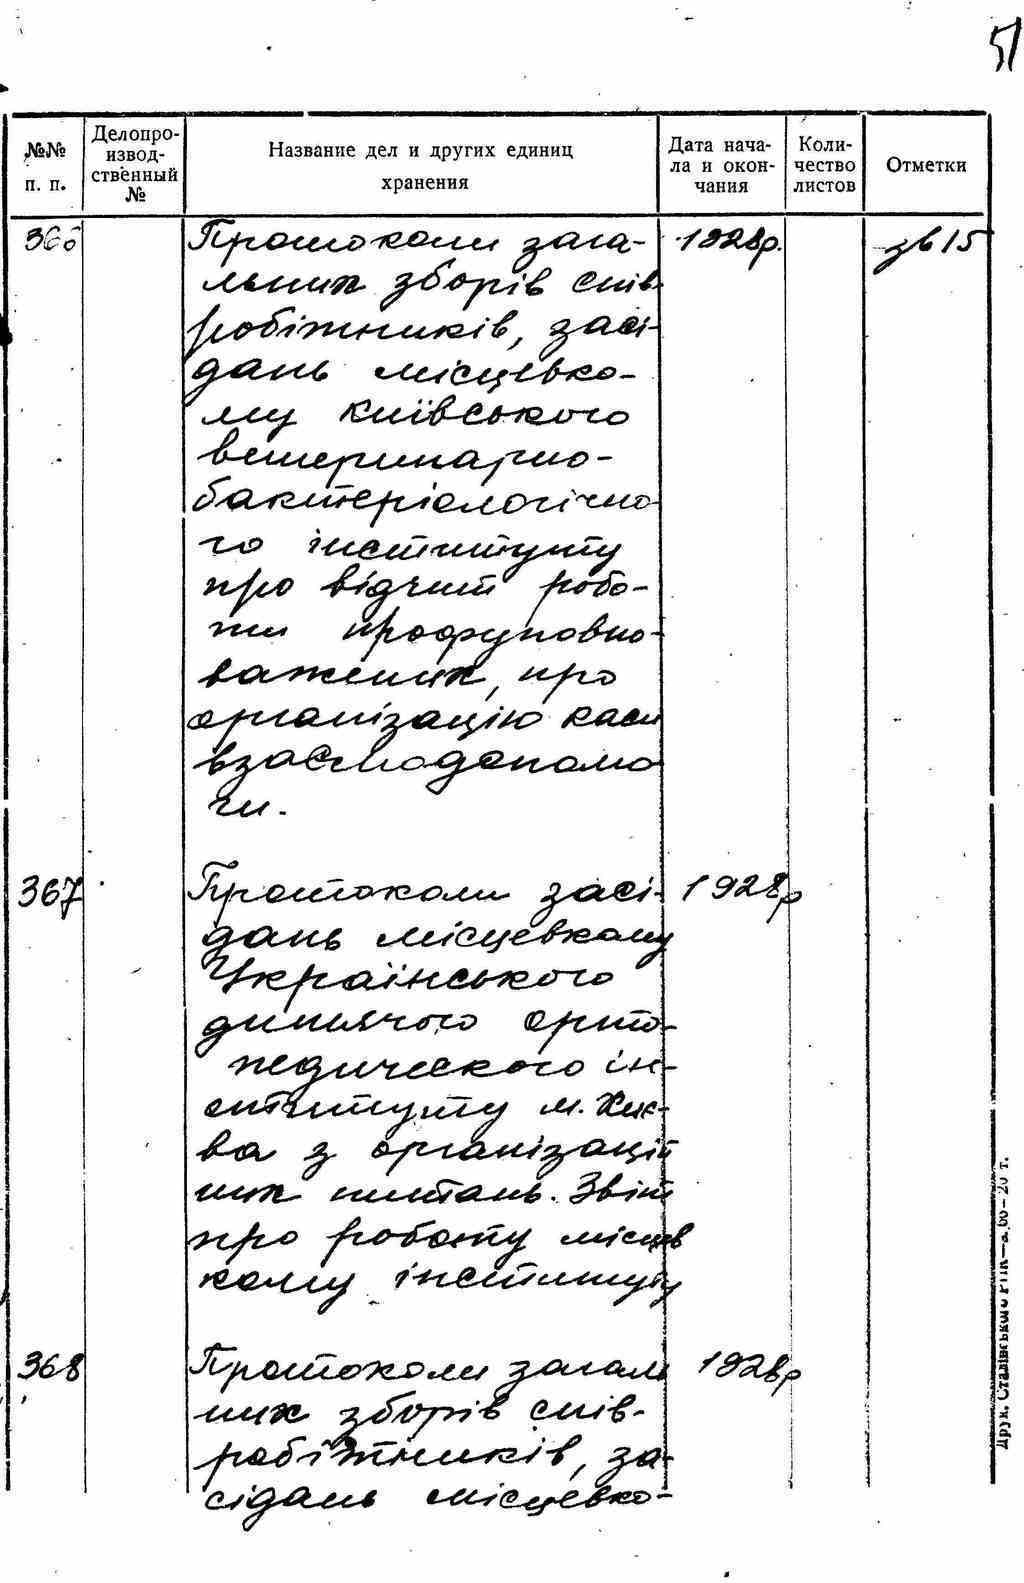 51
№№ п. п.
Делопро-
извод-
ственный
№
Название дел и других единиц
хранения
Дата нача-
ла и окон-
чания
Коли-
чество
листов
Отметки
366 Протоколи зага- 1928р.
льних зборів спів-
робітників, засі-
дань місцевко-
му Київського
ветеринарно-
бактеріологічно-
го інституту
про відчит робо-
ти профуповно-
важених, про
організацію каси
взаємодопомо
ги.
367 Протоколи засі- 1928р
дань місцевкому
Українського
дитячого орто-
педического ін-
ституту м. Киє-
ва з організацій
них питань. Звіт
про роботу місцев
кому інституту
368 Протоколи загаль 1928р
них зборів спів-
робітників, за-
сідань місцевко-